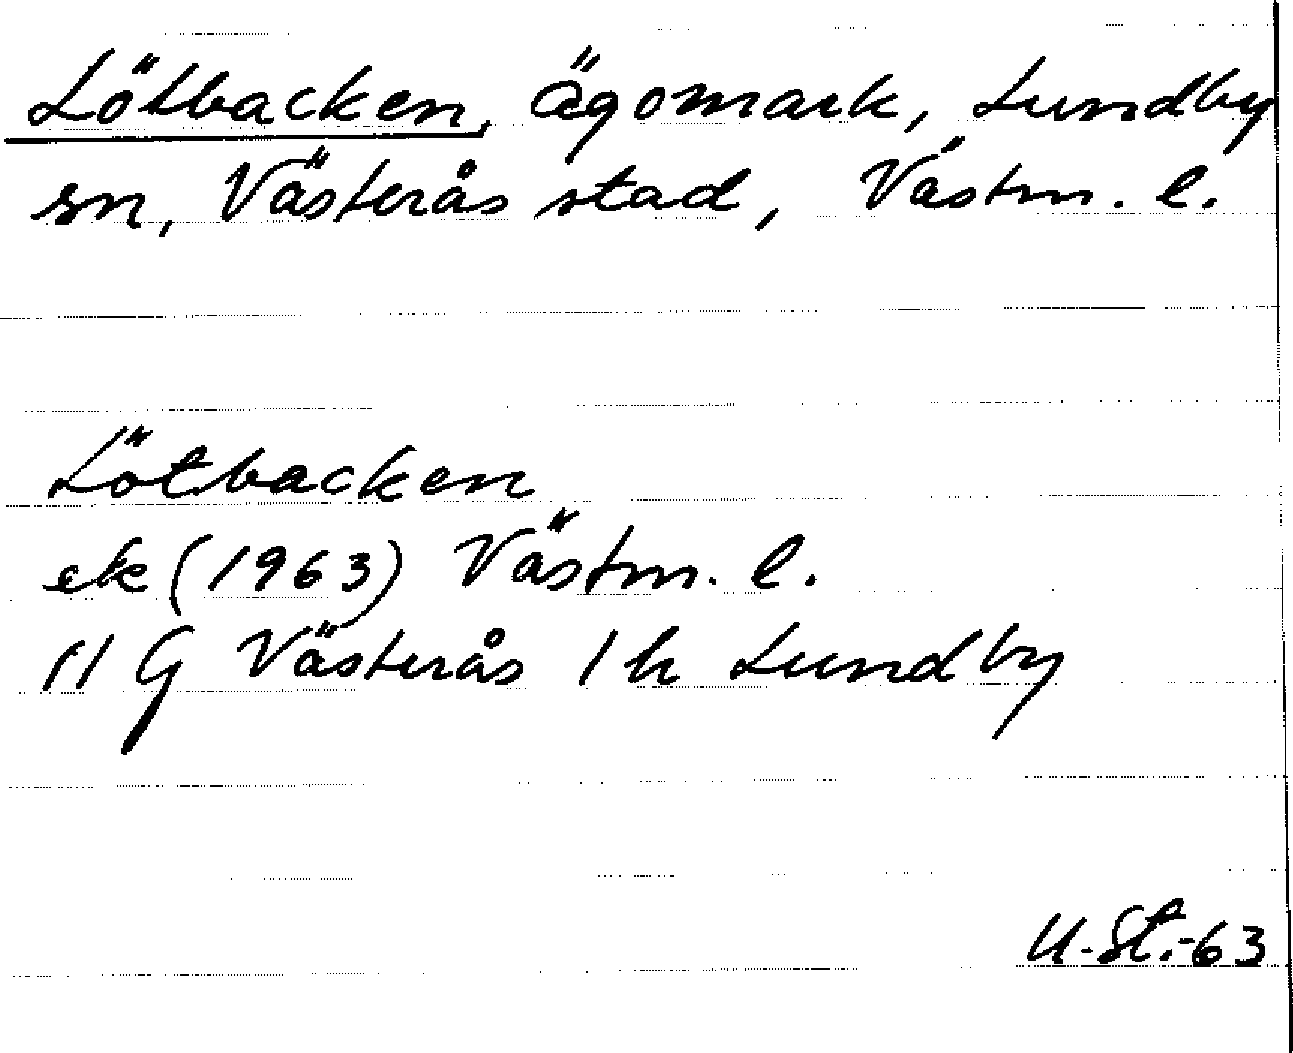 Lötbacken, ägomark, Lundby
sn, Västerås stad, Västm. l.
Lötbacken
ek (1963) Västm. l.
11 G Västerås 1h Lundby
U. St.-63